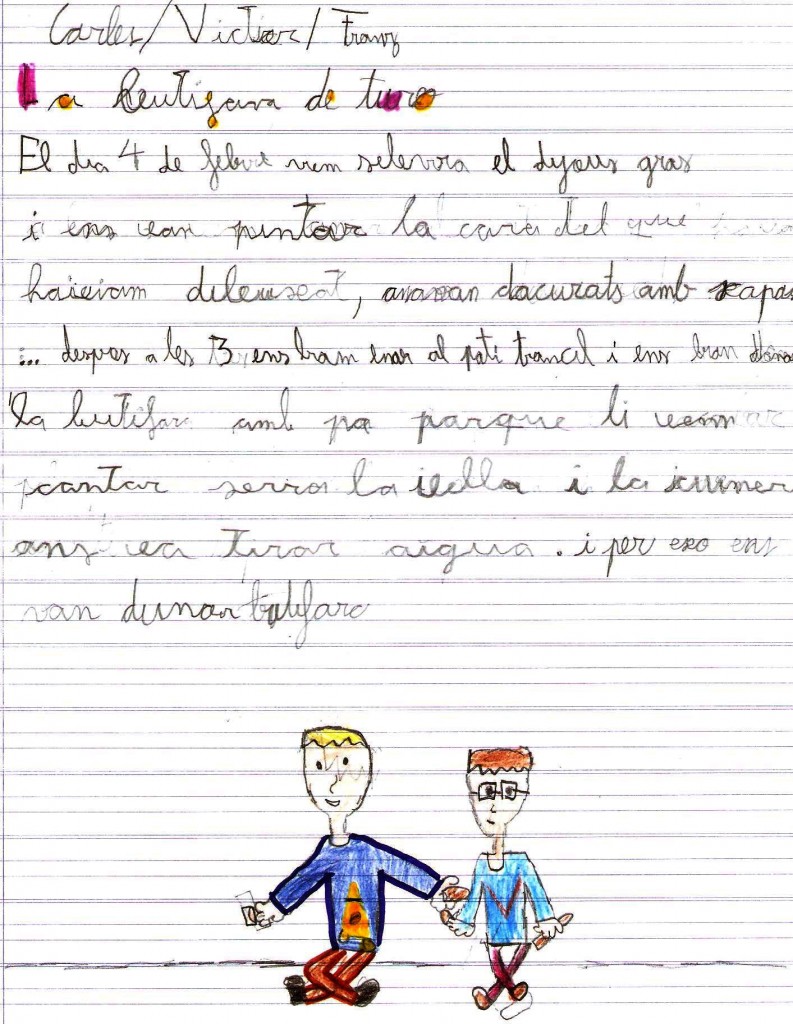 Carles/Victor/Franz
La butifara de turo
El dia 4 de febre vem selevra el dyous gras
i ens van pintar la cara del que
haieiam dileuseat, anavan dacurats amb capas
... despres a les 3 ens bram enar al pati trancil i ens bran
la butifara amb pa parque li vem
cantar serra la iella i la
ans va tirar aigua. i per exo ens
van dunar butifara